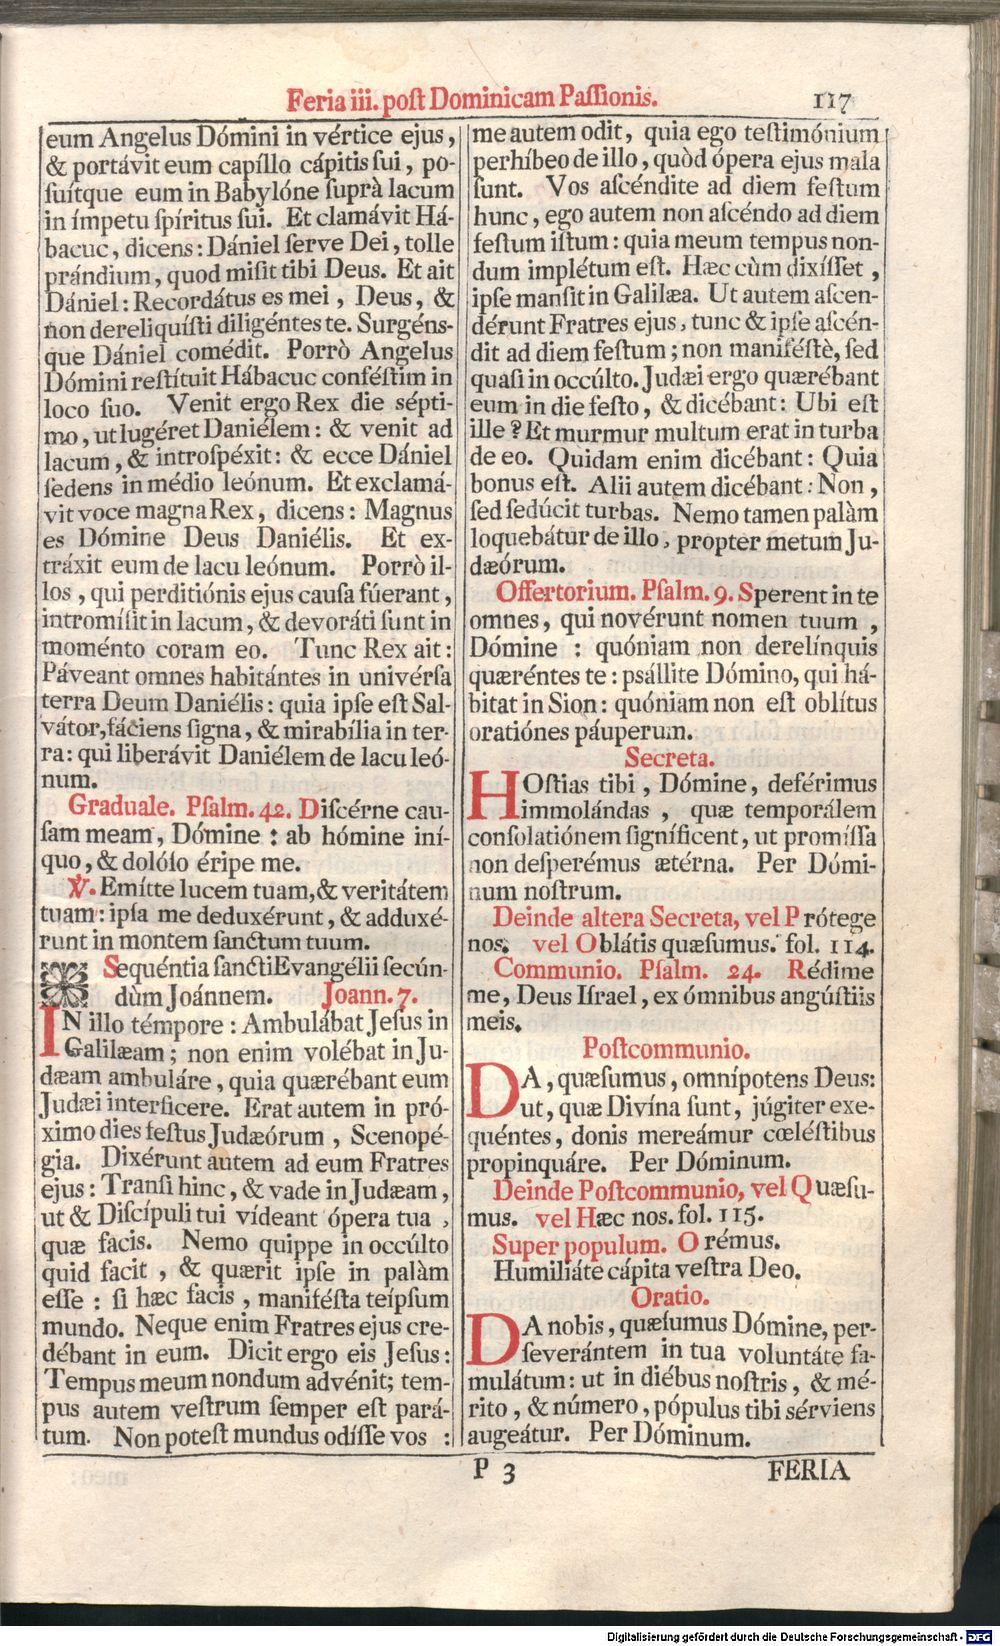 Feria iii. poſt Dominicam Paſſionis. 117
eum Angelus Dómini in vértice ejus,
& portávit eum capíllo cápitis ſui, po-
ſuítque eum in Babylóne ſuprà lacum
in ímpetu ſpíritus ſui. Et clamávit Há-
bacuc, dicens: Dániel ſerve Dei, tolle
prándium, quod miſit tibi Deus. Et ait
Dániel: Recordátus es mei, Deus, &
non dereliquíſti diligéntes te. Surgéns-
que Dániel comédit. Porrò Angelus
Dómini reſtítuit Hábacuc conféſtim in
loco ſuo. Venit ergo Rex die ſépti-
mo, ut lugéret Daniélem: & venit ad
lacum, & introſpéxit: & ecce Dániel
ſedens in médio leónum. Et exclamá-
vit voce magna Rex, dicens: Magnus
es Dómine Deus Daniélis. Et ex-
tráxit eum de lacu leónum. Porrò il-
los, qui perditiónis ejus cauſa fúerant,
intromíſit in lacum, & devoráti ſunt in
moménto coram eo. Tunc Rex ait:
Páveant omnes habitántes in univérſa
terra Deum Daniélis: quia ipſe eſt Sal-
vátor, fáciens ſigna, & mirabília in ter-
ra: qui liberávit Daniélem de lacu leó-
num.
Graduale. Pſalm. 42. Diſcérne cau-
ſam meam, Dómine: ab hómine iní-
quo, & dolóſo éripe me.
℣. Emítte lucem tuam, & veritátem
tuam: ipſa me deduxérunt, & adduxé-
runt in montem ſanctum tuum.
Sequéntia ſancti Evangélii ſecún-
dùm Joánnem. Joann. 7.
IN illo témpore: Ambulábat Jeſus in
Galilæam; non enim volébat in Ju-
dæam ambuláre, quia quærébant eum
Judæi interficere. Erat autem in pró-
ximo dies feſtus Judæórum, Scenopé-
gia. Dixérunt autem ad eum Fratres
ejus: Tranſi hinc, & vade in Judæam,
ut & Diſcípuli tui vídeant ópera tua,
quæ facis. Nemo quippe in occúlto
quid facit, & quærit ipſe in palàm
eſſe: ſi hæc facis, manifeſta teípſum
mundo. Neque enim Fratres ejus cre-
débant in eum. Dicit ergo eis Jeſus:
Tempus meum nondum advénit; tem-
pus autem veſtrum ſemper eſt pará-
tum. Non poteſt mundus odíſſe vos:
me autem odit, quia ego teſtimónium
perhíbeo de illo, quòd ópera ejus mala
ſunt. Vos aſcéndite ad diem feſtum
hunc, ego autem non aſcéndo ad diem
feſtum iſtum: quia meum tempus non-
dum implétum eſt. Hæc cùm dixíſſet,
ipſe manſit in Galilæa. Ut autem aſcen-
dérunt Fratres ejus, tunc & ipſe aſcén-
dit ad diem feſtum; non manifeſtè, ſed
quaſi in occúlto. Judæi ergo quærébant
eum in die feſto, & dicébant: Ubi eſt
ille? Et murmur multum erat in turba
de eo. Quidam enim dicébant: Quia
bonus eſt. Alii autem dicébant: Non,
ſed ſedúcit turbas. Nemo tamen palàm
loquebátur de illo, propter metum Ju-
dæórum.
Offertorium. Pſalm. 9. Sperent in te
omnes, qui novérunt nomen tuum,
Dómine: quóniam non derelínquis
quæréntes te: psállite Dómino, qui há-
bitat in Sion: quóniam non eſt oblítus
oratiónes páuperum.
Secreta.
HOſtias tibi, Dómine, deférimus
immolándas, quæ temporálem
conſolatiónem ſigníficent, ut promíſſa
non deſperémus ætérna. Per Dómi-
num noſtrum.
Deinde altera Secreta, vel Prótege
nos. vel Oblátis quæſumus. fol. 114.
Communio. Pſalm. 24. Rédime
me, Deus Iſrael, ex ómnibus angúſtiis
meis.
Poſtcommunio.
DA, quæſumus, omnípotens Deus:
ut, quæ Divína ſunt, júgiter exe-
quéntes, donis mereámur cœléſtibus
propinquáre. Per Dóminum.
Deinde Poſtcommunio, vel Quæſu-
mus. vel Hæc nos. fol. 115.
Super populum. Orémus.
Humiliáte cápita veſtra Deo.
Oratio.
DA nobis, quæſumus Dómine, per-
ſeverántem in tua voluntáte fa-
mulátum: ut in diébus noſtris, & mé-
rito, & número, pópulus tibi sérviens
augeátur. Per Dóminum.
P 3 FERIA
Digitalisierung gefördert durch die Deutsche Forschungsgemeinschaft - DFG